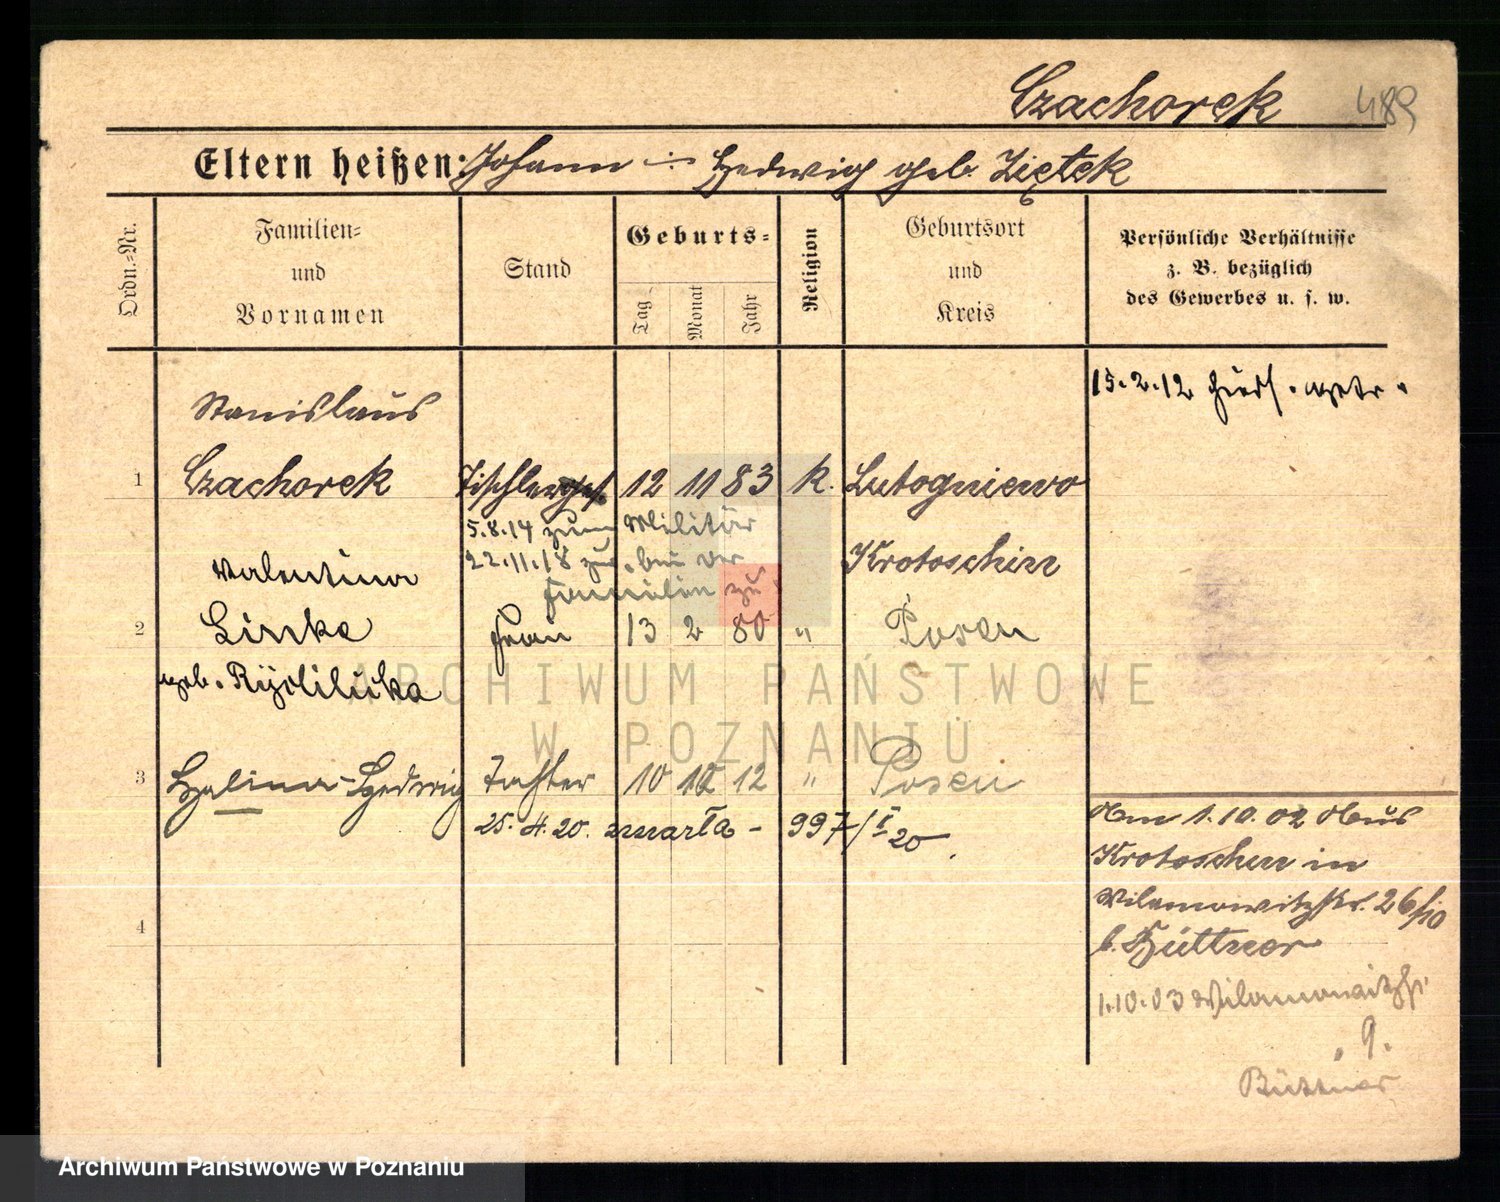 Czachorek 489
Eltern heißen: Johann ÷ Hedwig geb. Ziętek
Ordn.-Nr.
Familien-
und
Vornamen
Stand
Geburts-
Tag
Monat
Jahr
Religion
Geburtsort
und
Kreis
Persönliche Verhältnisse
z. B. bezüglich
des Gewerbes u. s. w.
15.2.12
Stanislaus
1 Czachorek Tischlerges. 12 11 83 k. Lutogniewo
5.8.14 zum Militär
22.11.18 zur. bei der
Familie zu
Krotoschin
Valentina
2 Liska Frau 13 2 80 " Posen
geb.
ARCHIWUM PAŃSTWOWE
W POZNANIU
3 Halina-Hedwig Tochter 10 12 12 " Posen
25.4.20. zmarła - 997/I 20
Am 1.10.02 Aus
Krotoschin in
Wilamowitzstr. 26/10
b. Hüttner
4
1.10.03 Wilamowitzstr.
9.
Büttner
Archiwum Państwowe w Poznaniu